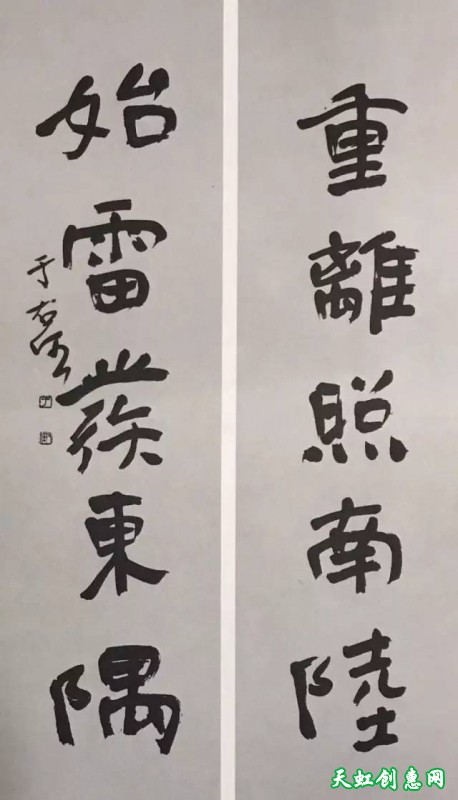 重離照南陸
始雷發東隅
于右任
天虹创惠网